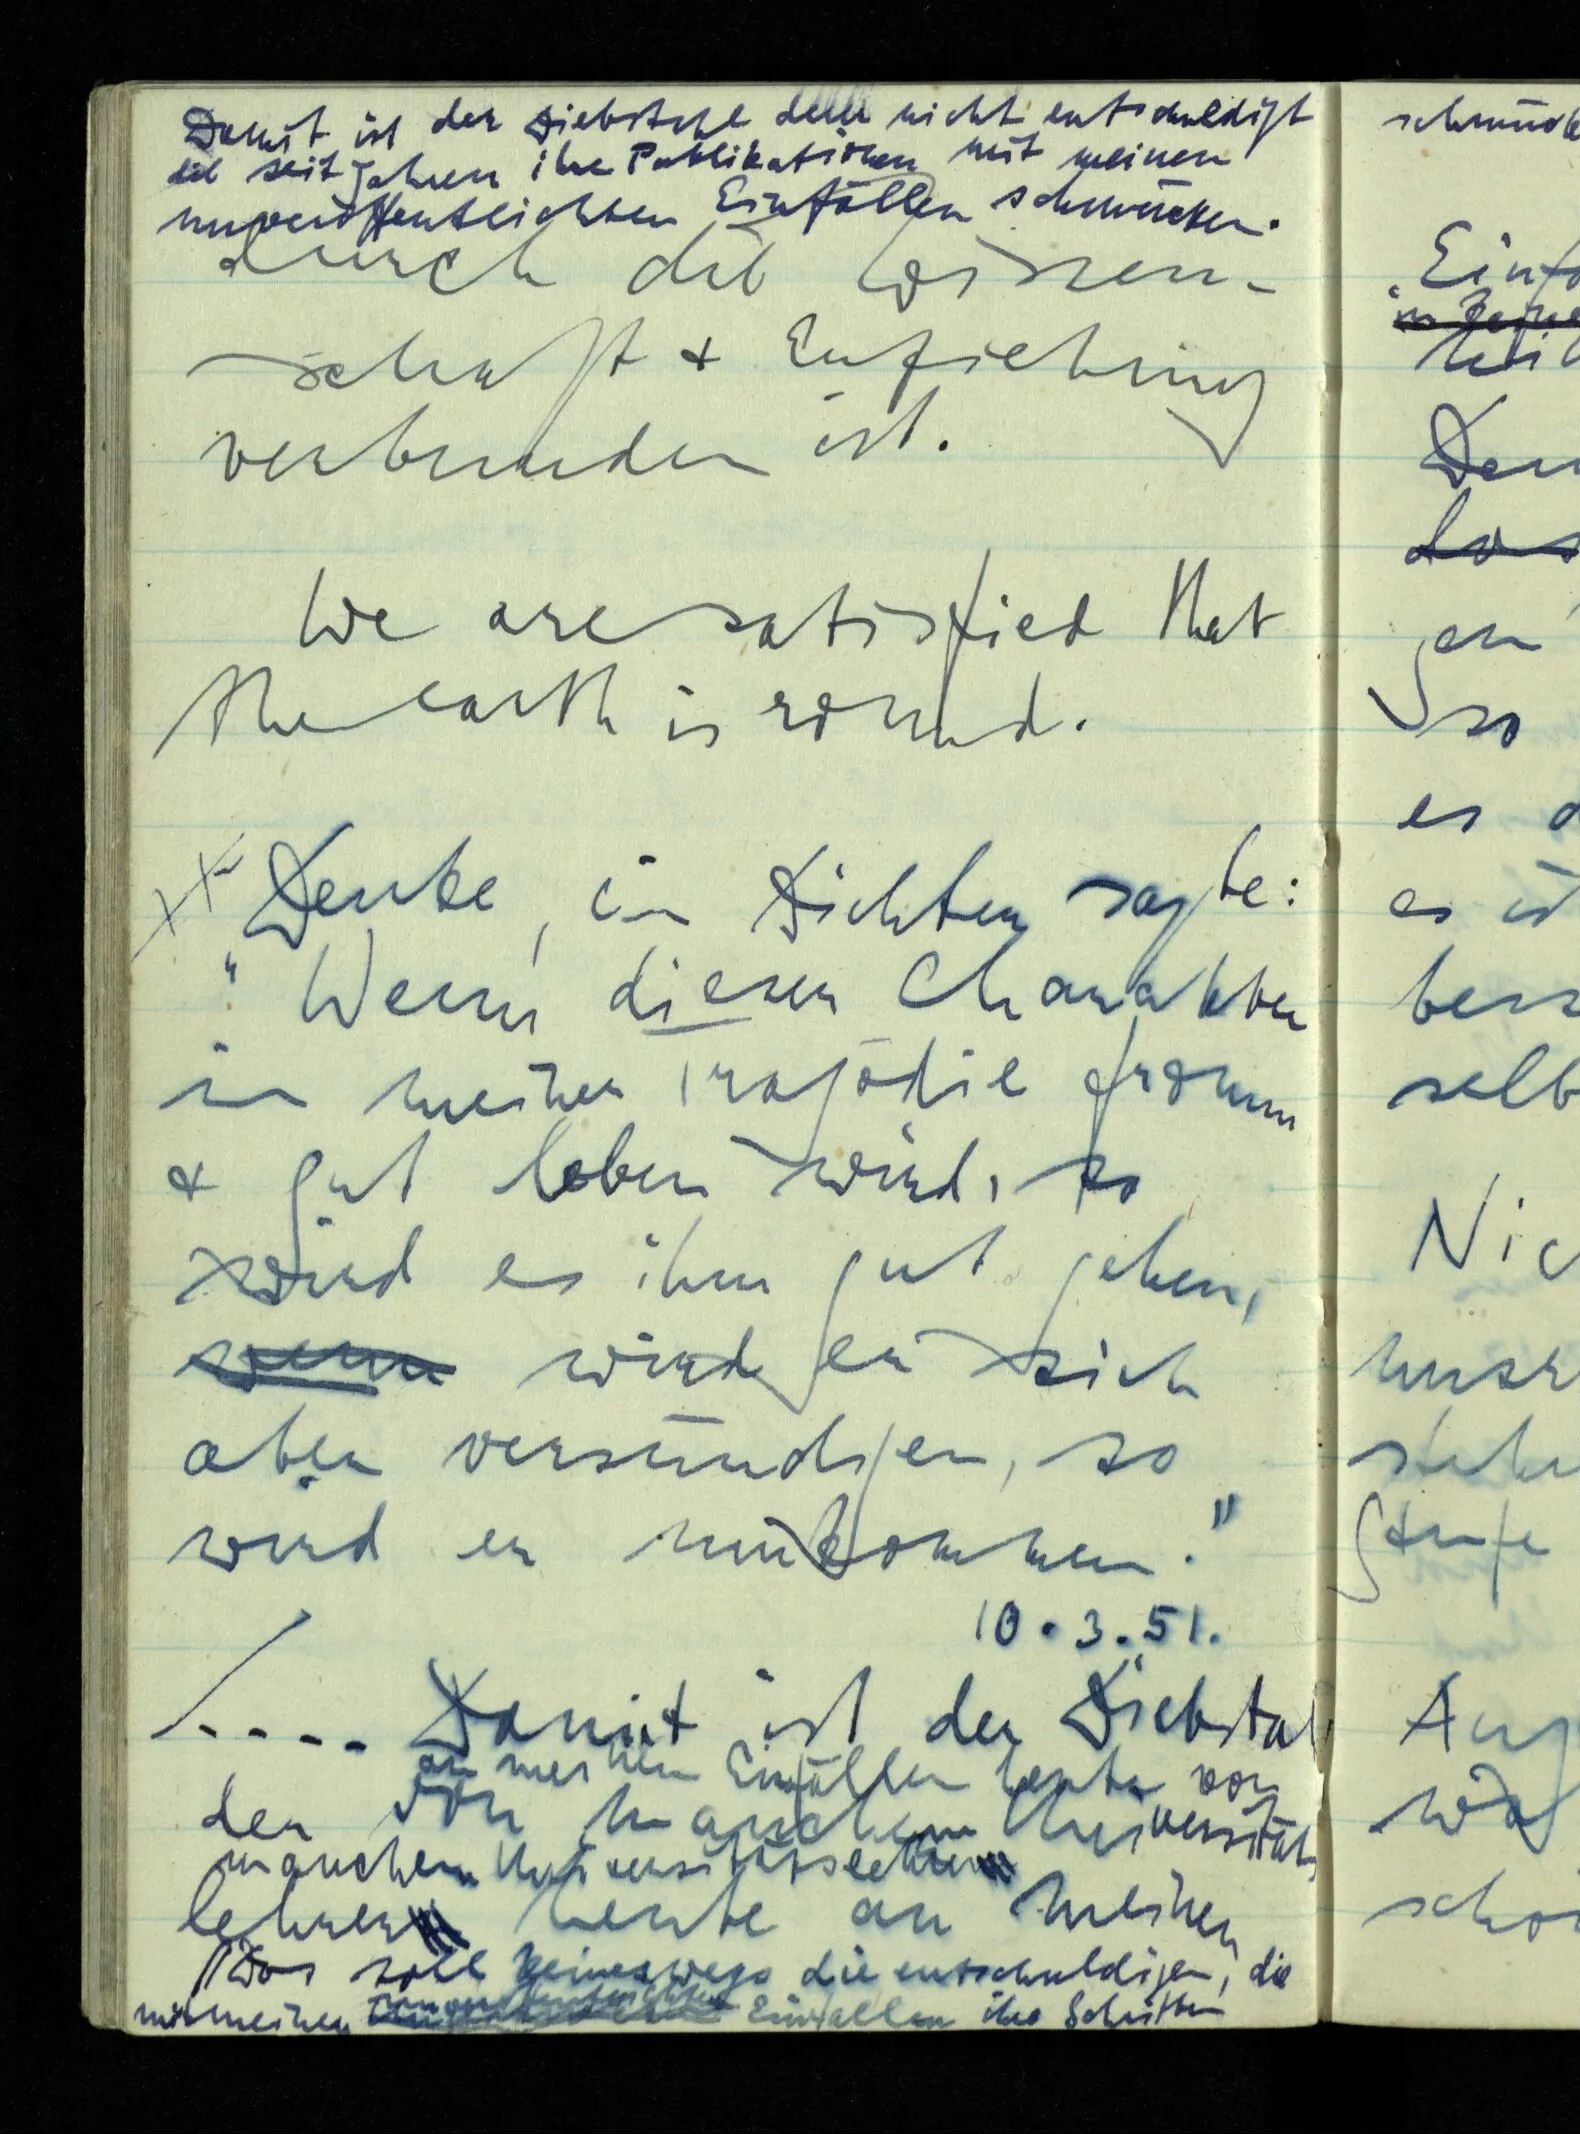 Damit ist der Diebstahl derer nicht entschuldigt
die seit Jahren ihre Publikationen mit meinen
unveröffentlichten Einfällen schmücken.
durch die Wissen-
schaft & Erziehung
verbunden ist.
We are satisfied that
the earth is round.
Denke, ein Dichter sagte:
"Wenn dieser Charakter
in meiner Tragödie fromm
& gut leben wird, so
wird es ihm gut gehen,
wenn wird er sich
aber versündigen, so
wird er umkommen."
10.3.51.
/.... Damit ist der Diebstal,
an meinen Einfällen heute von
den von manchem Universitäts
manchem Universitätslehrer
lehrer heute an meinen
Das soll keineswegs die entschuldigen, die
mit meinen unveröffentlichten Einfällen ihre Schriften
schmück
Einfä
Nic
unsr
Stufe
so
es d
es ist
bess
selb